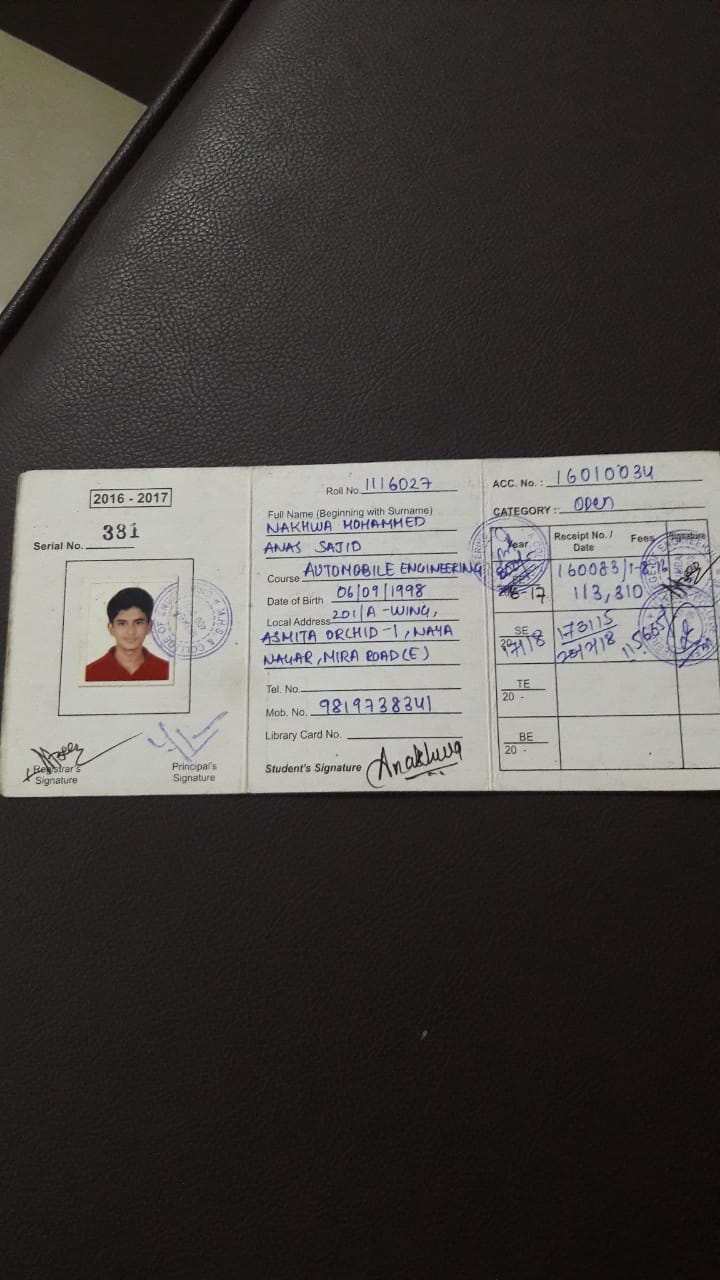 2016 - 2017
Serial No. 381
Registrar's
Signature
Principal's
Signature
Roll No. 1116027
Full Name (Beginning with Surname)
NAKHWA MOHAMMED
ANAS SAJID
Course AUTOMOBILE ENGINEERING
Date of Birth 06/09/1998
Local Address 201/A-WING,
ASMITA ORCHID-1, NAYA
NAGAR, MIRA ROAD(E)
Tel. No.
Mob. No. 9819738341
Library Card No.
Student's Signature Anakhwa
ACC. No. : 16010034
CATEGORY : OPEN
Year Receipt No. / Date Fees Signature
160083/1-8-16
-17 113,310
SE 173115
17/18 20/2/18 115605
TE
20 -
BE
20 -